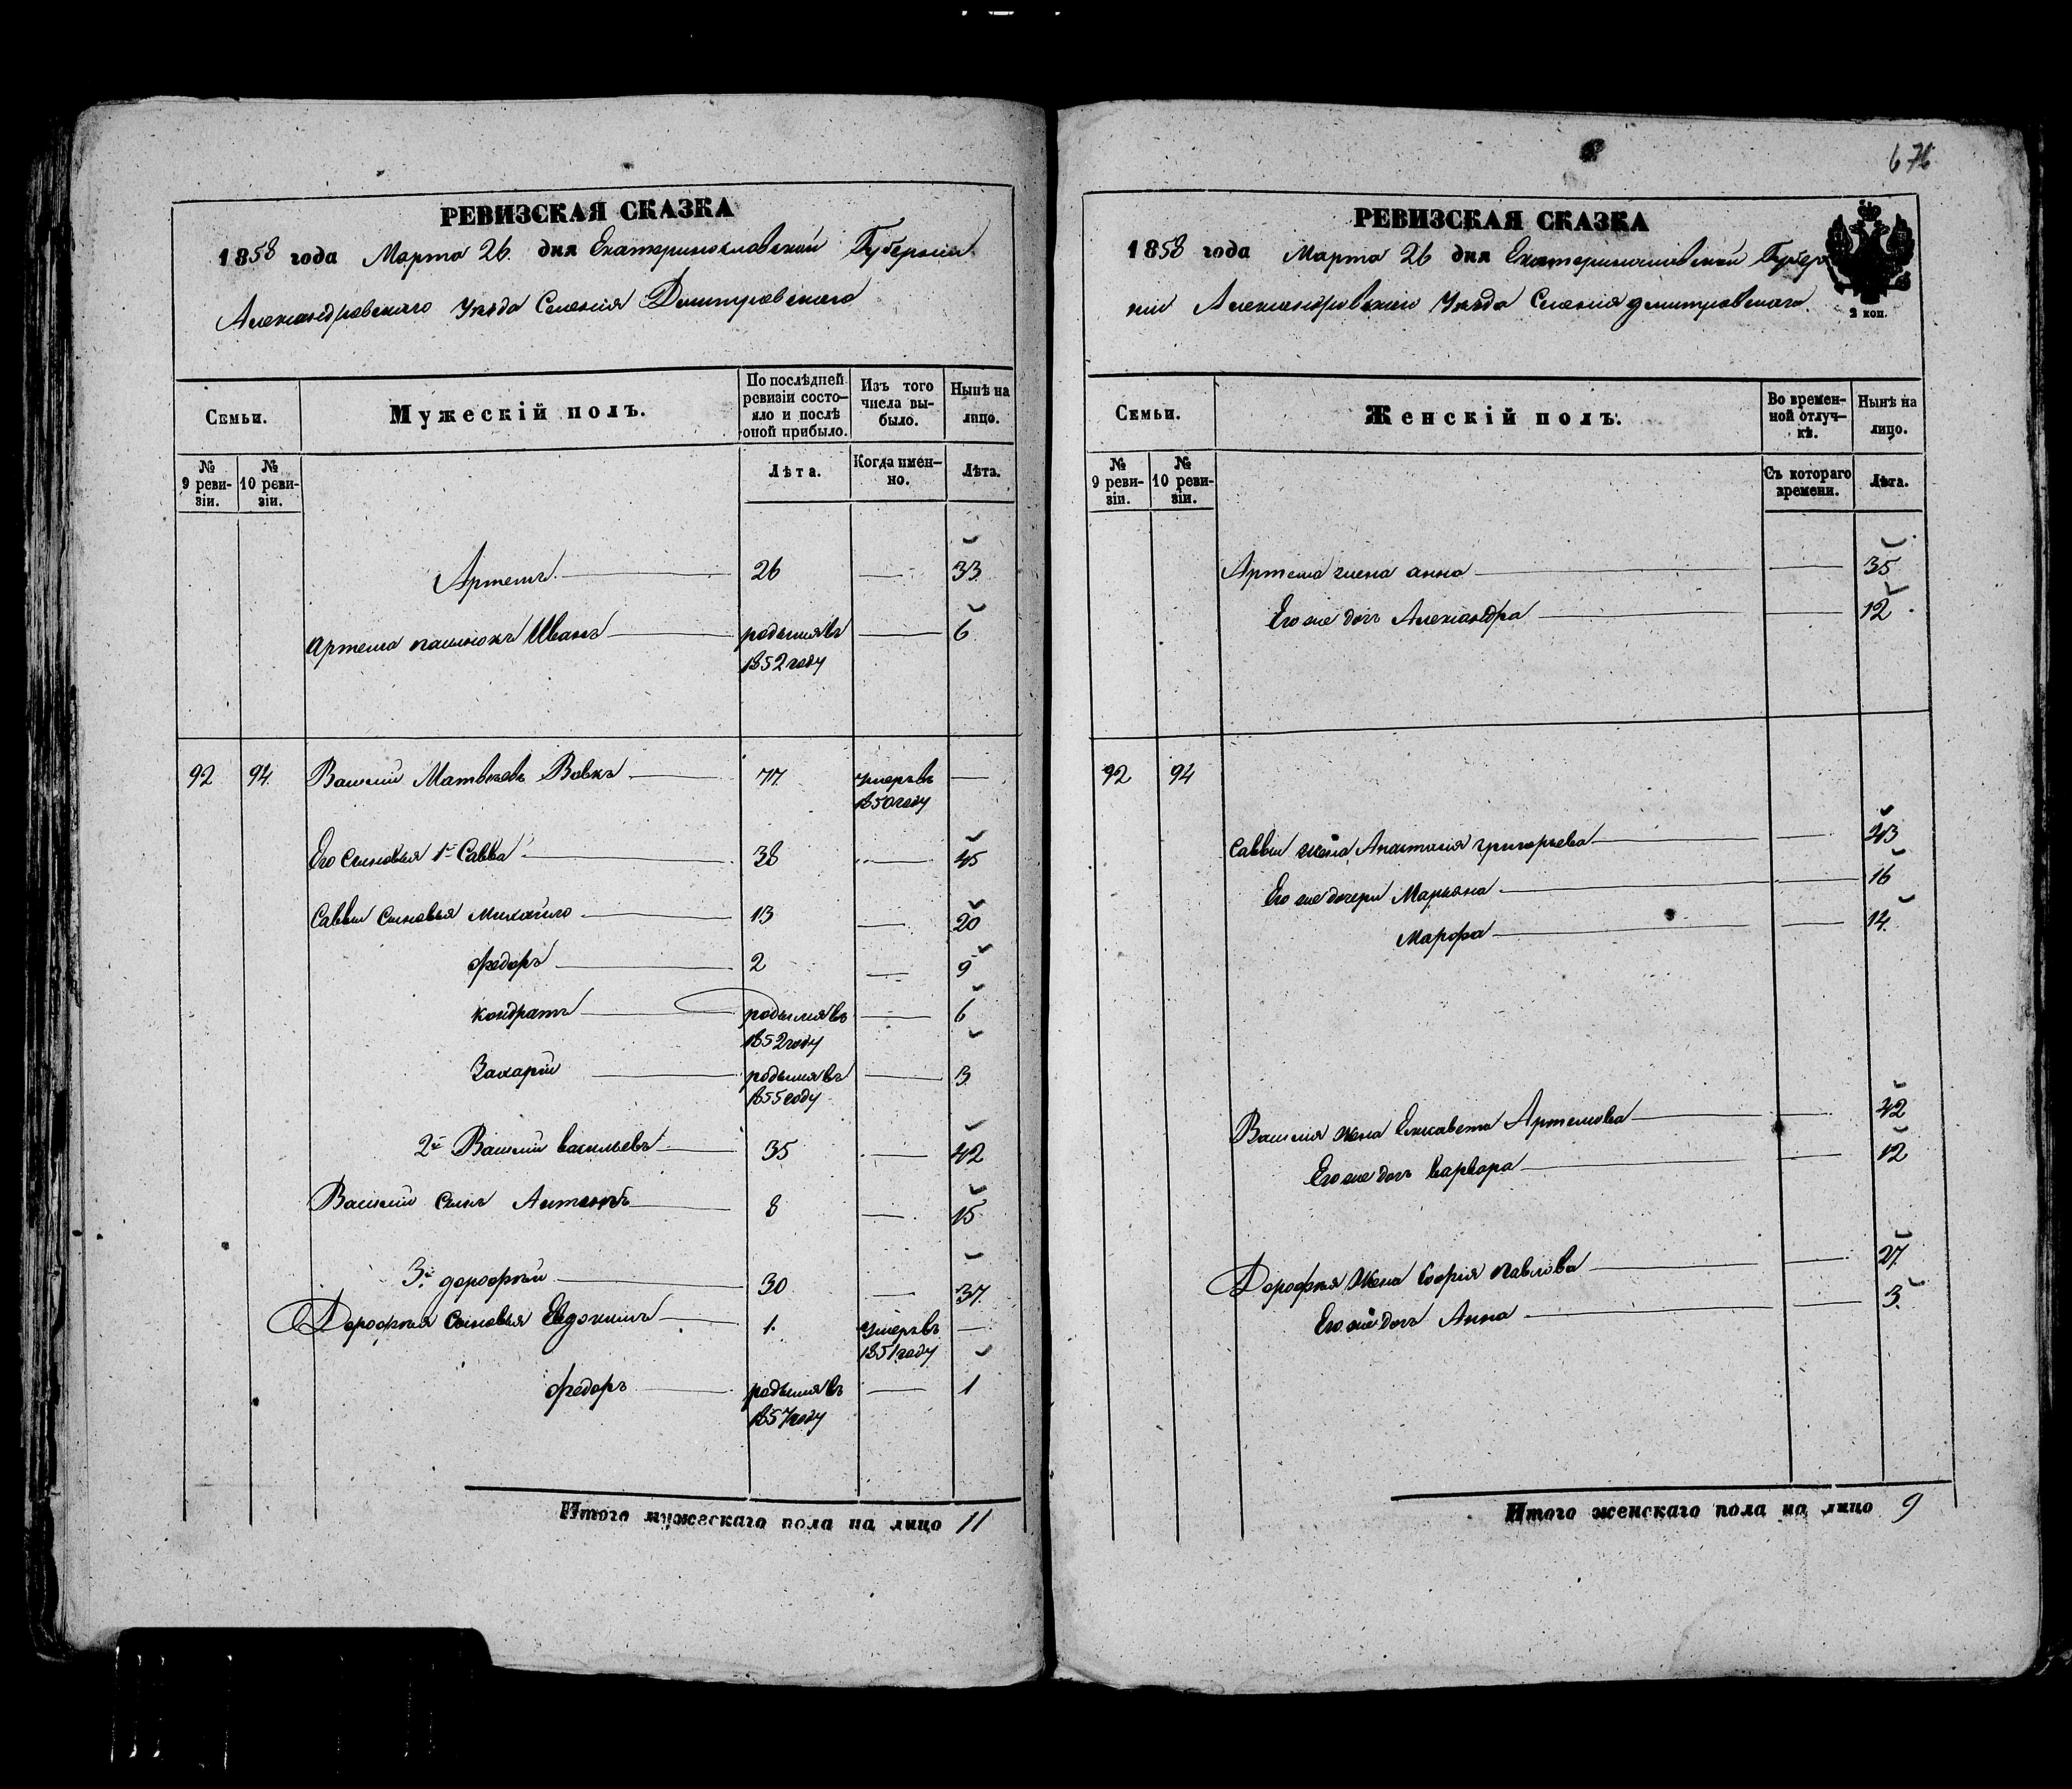 676
РЕВИЗСКАЯ СКАЗКА
1858 года Марта 26 дня Екатеринославской Губернии
Александровского Уезда Селения Дмитровского
Семьи.
Мужескій полъ.
По послѣдней ревизіи состо-
яло и послѣ
оной прибыло.
Изъ того
числа вы-
было.
Нынѣ на
лицо.
№
9 реви-
зіи.
№
10 реви-
зіи.
Лѣта.
Когда имен-
но.
Лѣта.
Артемъ 26 — 33
Артема Иванъ родился въ — 6
1852 году
92 94 Василий Матвеевъ Вовкъ 77 умеръ въ —
1850 году
Его сыновья 1й Савва 38 — 45
Саввы сыновья Михайло 13 — 20
Федоръ 2 — 9
Кондратъ родился въ — 6
1852 году
Захарий родился въ — 3
1855 году
2й Василий Васильевъ 35 — 42
Василия сынъ Антонъ 8 — 15
3й Дорофѣй 30 — 37
Дорофѣя сыновья Евдокимъ 1 умеръ въ —
1851 году
Федоръ родился въ — 1
1857 году
Итого мужескаго пола на лицо 11
РЕВИЗСКАЯ СКАЗКА
1858 года Марта 26 дня Екатеринославской Губер
нии Александровского Уезда Селения Дмитровского
2 коп.
Семьи.
Женскій полъ.
Во времен-
ной отлуч-
кѣ.
Нынѣ на
лицо.
№
9 реви-
зіи.
№
10 реви-
зіи.
Съ котораго
времени.
Лѣта.
Артема жена Анна — 35
Его же дочь Александра — 12
92 94
Саввы жена Анастасия Григорьева — 43
Его же дочери Марьяна — 16
Марфа — 14
Василия жена Елисавета Артемова — 42
Его же дочь Варвара — 12
Дорофѣя жена София Павлова — 27
Его же дочь Анна — 3
Итого женскаго пола на лицо 9